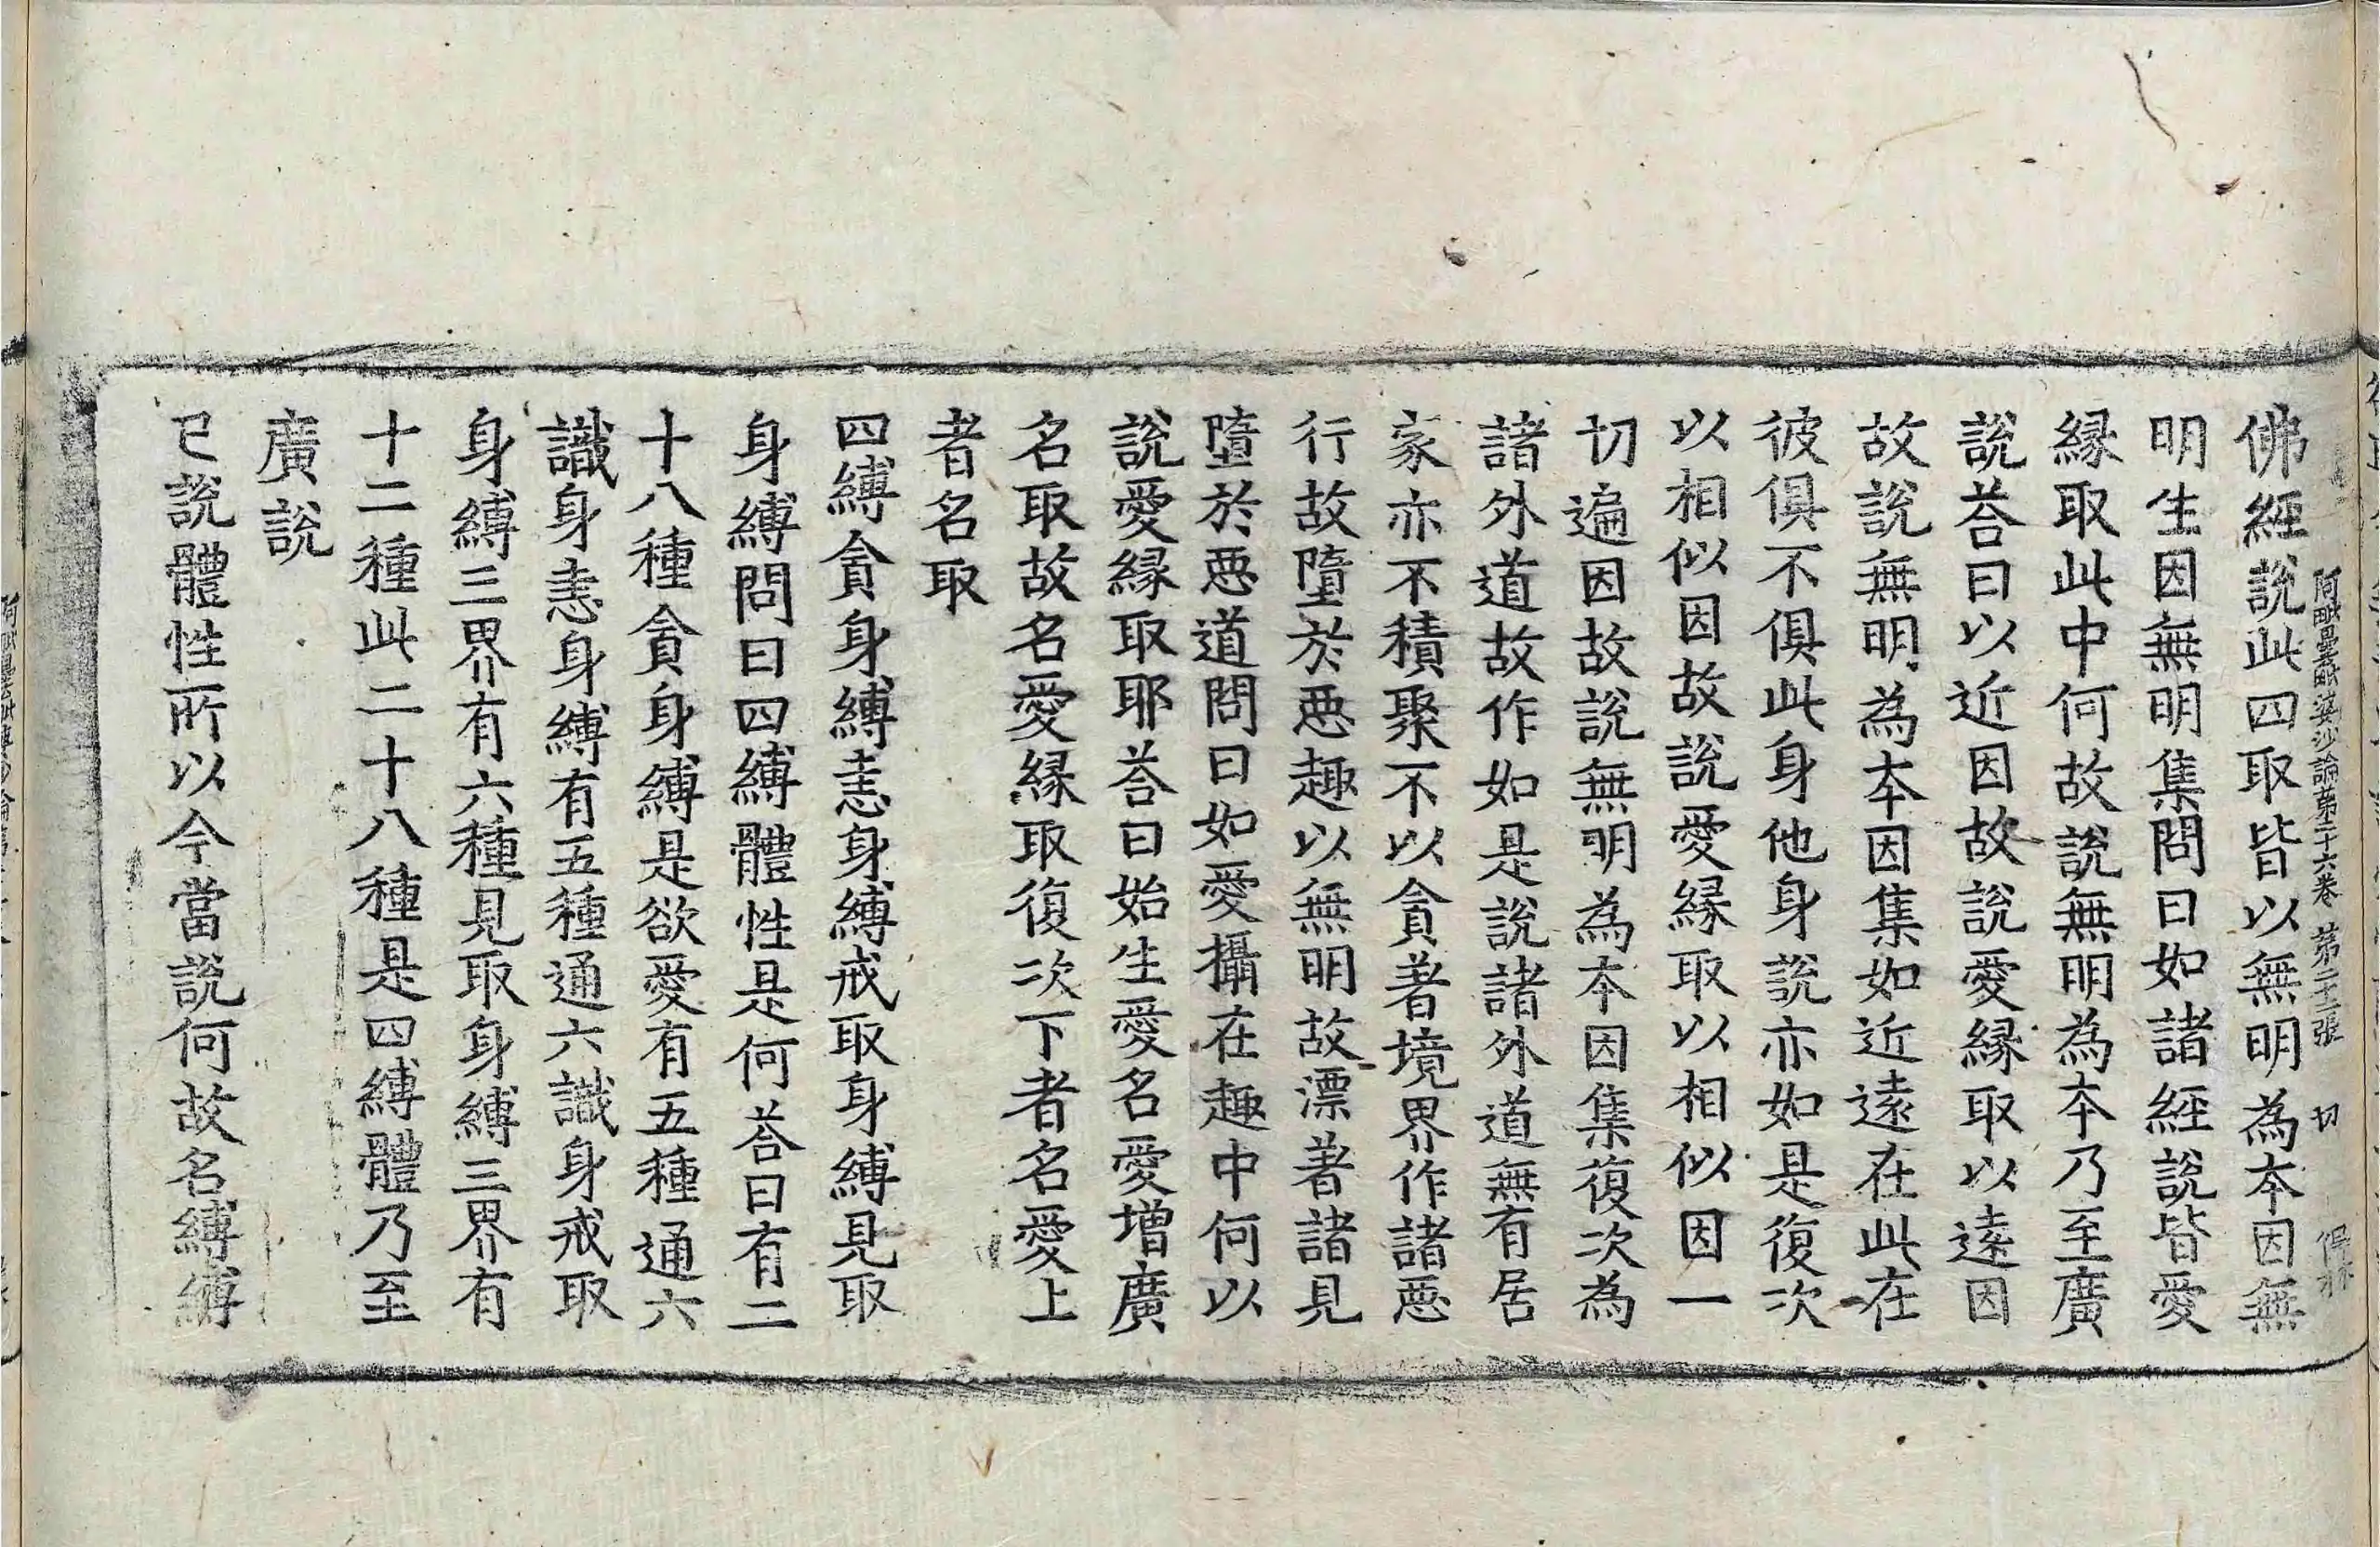 阿毗曇毗婆沙論苐二十六卷 苐二十二張 切
佛經說此四取皆以無明為夲因無
明生因無明集問曰如諸經說皆愛
縁取此中何故說無明為夲乃至廣
說荅曰以近因故說愛縁取以遠因
故說無明為夲因集如近遠在此在
彼俱不俱此身他身說亦如是復次
以相似因故說愛縁取以相似因一
切遍因故說無明為夲因集復次為
諸外道故作如是說諸外道無有居
家亦不積聚不以貪著境界作諸惡
行故墮於惡趣以無明故漂著諸見
墮於惡道問曰如愛攝在趣中何以
說愛縁取耶荅曰始生愛名愛增廣
名取故名愛縁取復次下者名愛上
者名取
四縛貪身縛恚身縛戒取身縛見取
身縛問曰四縛體性是何荅曰有二
十八種貪身縛是欲愛有五種通六
識身恚身縛有五種通六識身戒取
身縛三界有六種見取身縛三界有
十二種此二十八種是四縛體乃至
廣說
已說體性所以今當說何故名縛縛